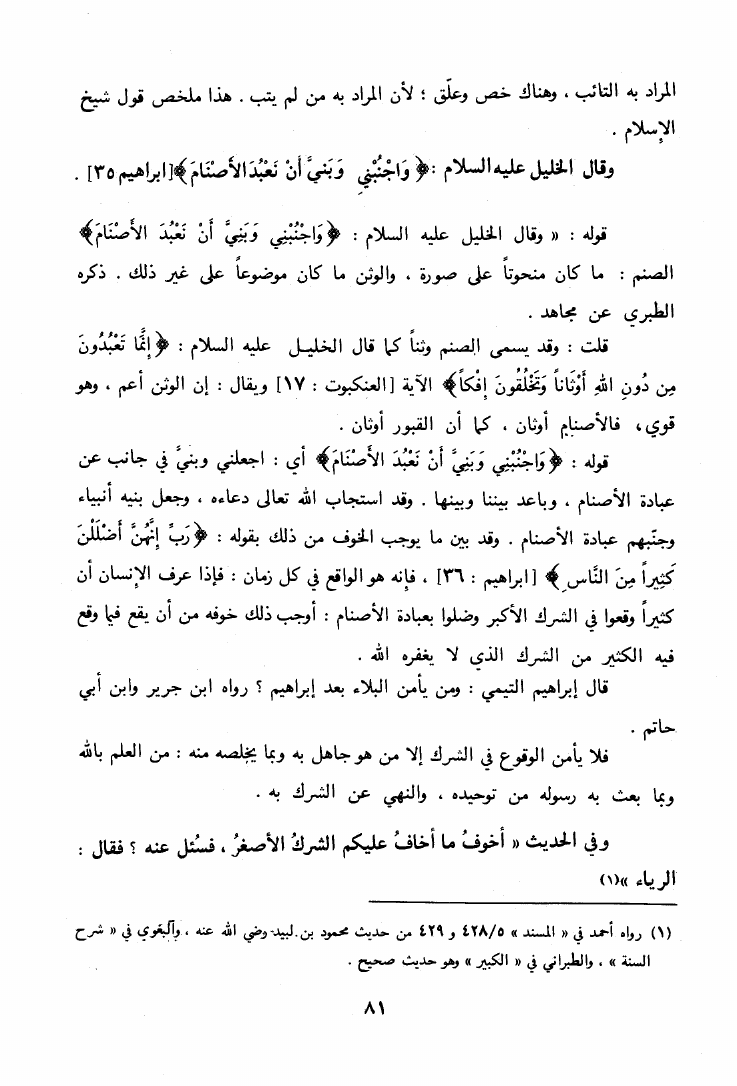 المراد به التائب ، وهناك خص وعلّق ؛ لأن المراد به من لم يتب . هذا ملخص قول شيخ
الإسلام .
وقال الخليل عليه السلام : ﴿ وَاجْنُبْنِي وَبَنِيَّ أَنْ نَعْبُدَ الأَصْنَامَ ﴾[ابراهيم ٣٥] .
قوله : « وقال الخليل عليه السلام : ﴿وَاجْنُبْنِي وَبَنِيَّ أَنْ نَعْبُدَ الأَصْنَامَ﴾
الصنم : ما كان منحوتاً على صورة ، والوثن ما كان موضوعاً على غير ذلك . ذكره
الطبري عن مجاهد .
قلت : وقد يسمى الصنم وثناً كما قال الخليل عليه السلام : ﴿إِنَّمَا تَعْبُدُونَ
مِن دُونِ اللهِ أَوْثَاناً وَتَخْلُقُونَ إِفْكاً﴾ الآية [العنكبوت : ١٧] ويقال : إن الوثن أعم ، وهو
قوي، فالأصنام أوثان ، كما أن القبور أوثان .
قوله : ﴿وَاجْنُبْنِي وَبَنِيَّ أَنْ نَعْبُدَ الأَصْنَامَ﴾ أي : اجعلني وبنيَّ في جانب عن
عبادة الأصنام ، وباعد بيننا وبينها . وقد استجاب الله تعالى دعاءه ، وجعل بنيه أنبياء
وجنّبهم عبادة الأصنام . وقد بين ما يوجب الخوف من ذلك بقوله : ﴿رَبِّ إِنَّهُنَّ أَضْلَلْنَ
كَثِيراً مِنَ النَّاسِ﴾ [ابراهيم : ٣٦] ، فإنه هو الواقع في كل زمان : فإذا عرف الإنسان أن
كثيراً وقعوا في الشرك الأكبر وضلوا بعبادة الأصنام : أوجب ذلك خوفه من أن يقع فيما وقع
فيه الكثير من الشرك الذي لا يغفره الله .
قال إبراهيم التيمي : ومن يأمن البلاء بعد إبراهيم ؟ رواه ابن جرير وابن أبي
حاتم .
فلا يأمن الوقوع في الشرك إلا من هو جاهل به وبما يخلصه منه : من العلم بالله
وبما بعث به رسوله من توحيده ، والنهي عن الشرك به .
وفي الحديث « أخوفُ ما أخافُ عليكم الشركُ الأصغرُ ، فسُئل عنه ؟ فقال :
الرياء »(١)
(١) رواه أحمد في « المسند » ٤٢٨/٥ و ٤٢٩ من حديث محمود بن لبيد رضي الله عنه ، والبغوي في « شرح
السنة » ، والطبراني في « الكبير » وهو حديث صحيح .
٨١